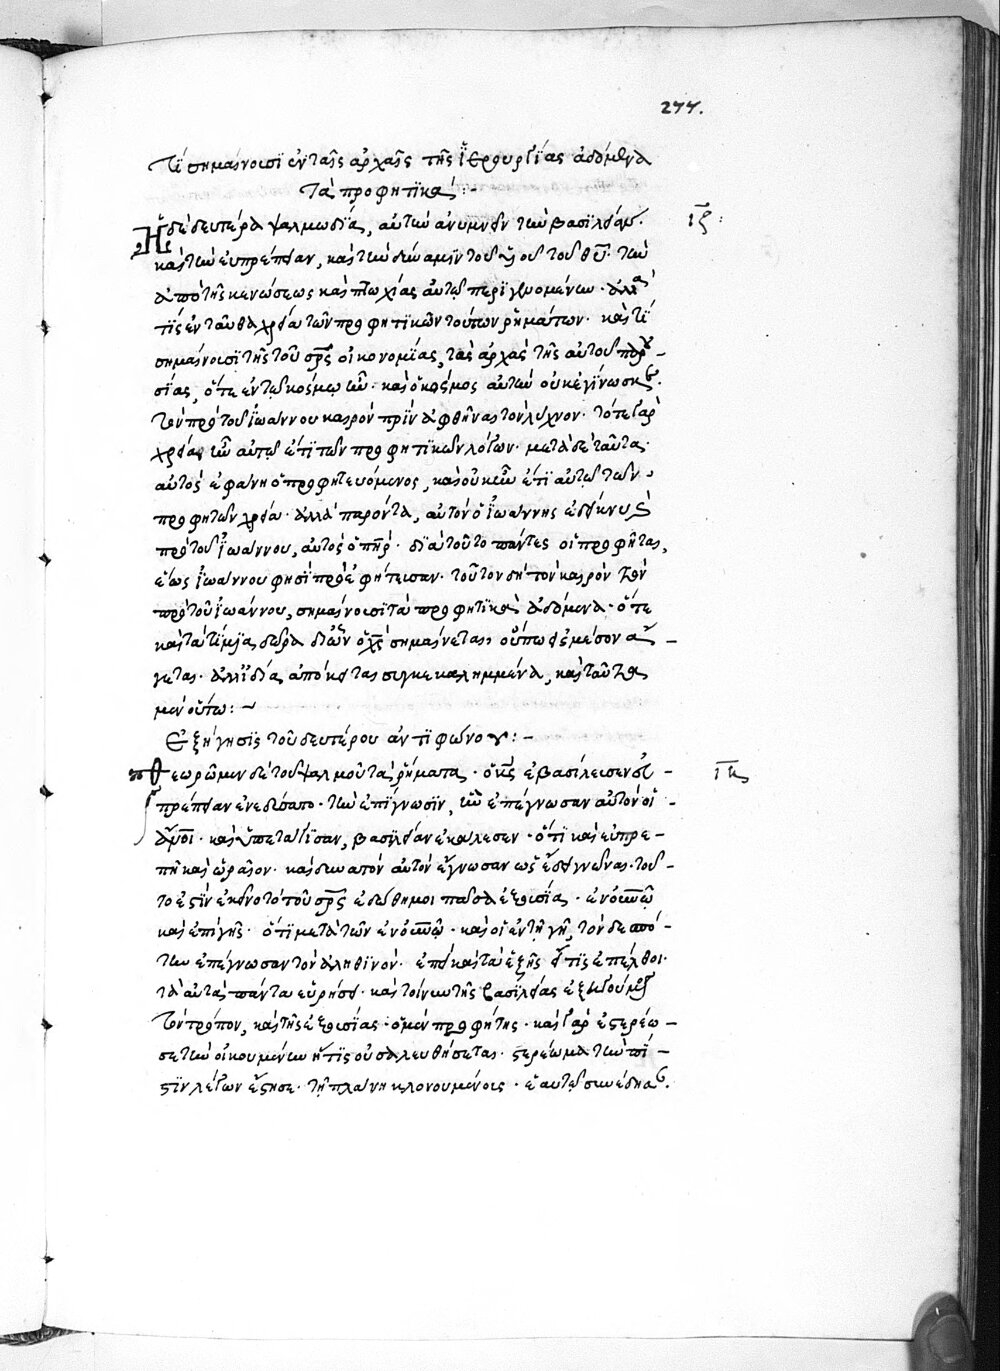 277.
Τί σημαίνουσι ἐν ταῖς ἀρχαῖς τῆς ἱερουργίας ἀδόμενα
τὰ προφητικά :-
Ἡ δὲ δευτέρα ψαλμωδία, αὐτὴν ἀνυμνεῖν τὴν βασιλείαν. ιζ :
καὶ τὴν εὐπρέπειαν, καὶ τὴν δύναμιν τοῦ υἱοῦ τοῦ θυ. τὴν
ἀπὸ τῆς κενώσεως καὶ πτωχίας αὐτῷ περιγενομένην. ἀλλὰ
τίς ἐνταῦθα χρεία τῶν προφητικῶν τούτων ρημάτων. καὶ τί
σημαίνουσι τῆς τοῦ σρς οἰκονομίας, τὰς ἀρχὰς τῆς αὐτοῦ παρου-
σίας, ὅτε ἐν τῷ κόσμῳ ἦν. καὶ ὁ κόσμος αὐτὸν οὐκ ἐγίνωσκεν.
τὸν πρὸ τοῦ ἰωάννου καιρὸν πρὶν ἀφθῆναι τὸν λύχνον. τότε γὰρ
χρεία ἦν αὐτῷ ἔτι τῶν προφητικῶν λόγων. μετὰ δὲ ταῦτα
αὐτὸς ἐφάνη ὁ προφητευόμενος, καὶ οὐκ ἦν ἔτι αὐτῷ τῶν
προφητῶν χρεία. ἀλλὰ παρόντα, αὐτὸν ὁ ἰωάννης ἐδείκνυ
πρὸ τοῦ ἰωάννου, αὐτὸς ὁ πηρ. διὰ τοῦτο πάντες οἱ προφῆται,
ἕως ἰωάννου φησὶ προεφήτευσαν. τοῦτον δὴ τὸν καιρὸν τὸν
πρὸ τοῦ ἰωάννου, σημαίνουσι τὰ προφητικὰ ἀδόμενα. ὅτε
καὶ τὰ τίμια δῶρα δι' ὧν ὁ χς σημαίνεται οὔπω εἰς μέσον ἄ-
γεται. ἀλλ' ἰδία ἀπόκειται συγκεκαλημμένα, καὶ ταῦτα
μὲν οὕτω : ~
Ἐξήγησις τοῦ δευτέρου ἀντιφώνου :-
Θεωρῶμεν δὲ τοῦ ψαλμοῦ τὰ ρήματα. ὁ κς ἐβασίλευσεν εὐ- ιη
πρέπειαν ἐνεδύσατο. τὴν ἐπίγνωσιν, ἣν ἐπέγνωσαν αὐτὸν οἱ
ἄνοι. καὶ ὑπετάγησαν, βασιλείαν ἐκάλεσεν. ὅτι καὶ εὐπρε-
πῆ καὶ ὡραῖον. καὶ δυνατὸν αὐτὸν ἔγνωσαν ὡς ἔδει γνῶναι. τοῦ-
το ἐστὶν ἐκεῖνο τὸ τοῦ σρς ἐδόθη μοι πᾶσα ἐξουσία. ἐν οὐνῷ
καὶ ἐπὶ γῆς. ὅτι μετὰ τῶν ἐν οὐνῷ. καὶ οἱ ἐν τῇ γῇ, τὸν δεσπό-
την ἐπέγνωσαν τὸν ἀληθινόν. ἐπεὶ καὶ τὰ ἑξῆς εἴ τις ἐπέλθοι.
τὰ αὐτὰ πάντα εὑρήσει. καὶ τοίνυν τῆς βασιλείας ἐξηγούμενος
τὸν τρόπον, καὶ τῆς ἐξουσίας. ὁ μὲν προφήτης. καὶ γὰρ ἐστερέω-
σε τὴν οἰκουμένην ἥτις οὐ σαλευθήσεται. στερέωμα τὴν πί-
στιν λέγων ἔστησε. τῇ πλάνῃ κλονουμένοις. ἑαυτῷ συνέδησεν.